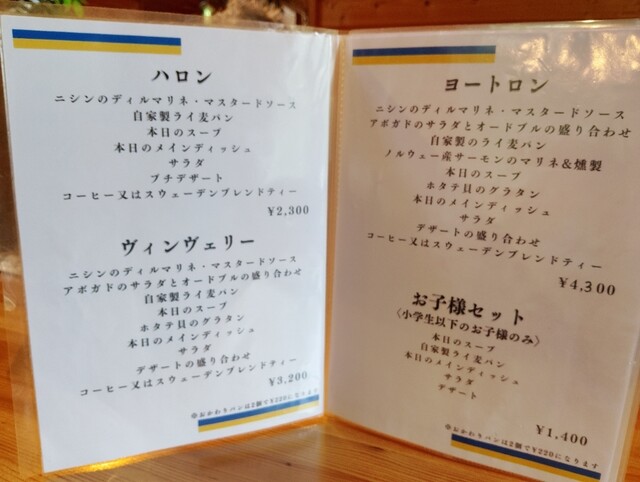 ハロン
ニシンのディルマリネ・マスタードソース
自家製ライ麦パン
本日のスープ
本日のメインディッシュ
サラダ
プチデザート
コーヒー又はスウェーデンブレンドティー
¥2,300
ヴィンヴェリー
ニシンのディルマリネ・マスタードソース
アボガドのサラダとオードブルの盛り合わせ
自家製ライ麦パン
本日のスープ
ホタテ貝のグラタン
本日のメインディッシュ
サラダ
デザートの盛り合わせ
コーヒー又はスウェーデンブレンドティー
¥3,200
※おかわりパンは2個で¥220になります
ヨートロン
ニシンのディルマリネ・マスタードソース
アボガドのサラダとオードブルの盛り合わせ
自家製のライ麦パン
ノルウェー産サーモンのマリネ&燻製
本日のスープ
ホタテ貝のグラタン
本日のメインディッシュ
サラダ
デザートの盛り合わせ
コーヒー又はスウェーデンブレンドティー
¥4,300
お子様セット
〈小学生以下のお子様のみ〉
本日のスープ
自家製ライ麦パン
本日のメインディッシュ
サラダ
デザート
¥1,400
※おかわりパンは2個で¥220になります